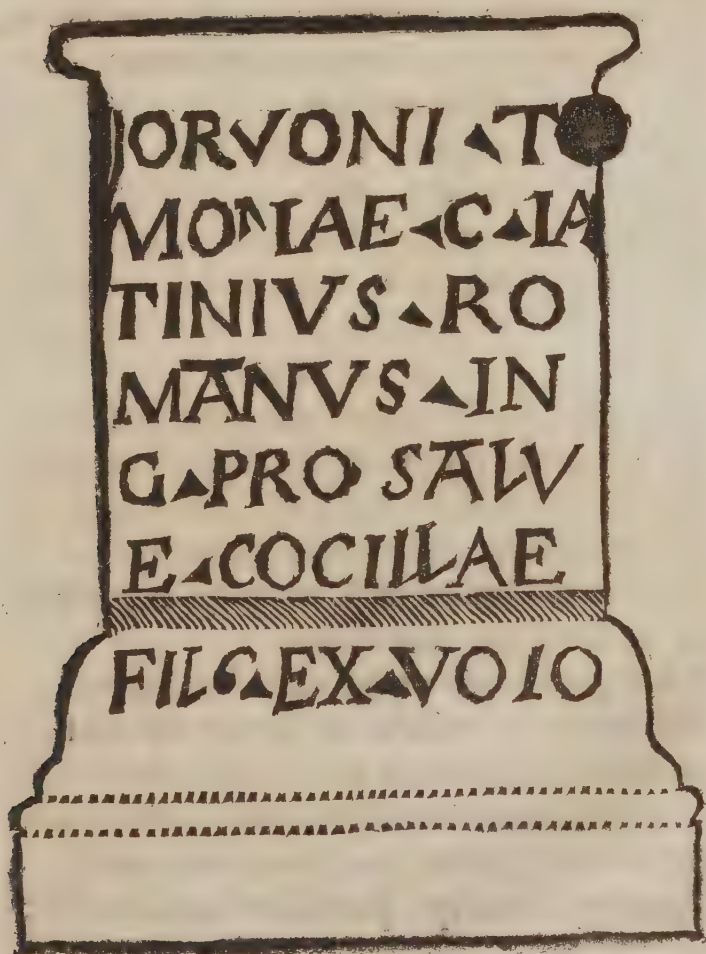 BORVONI ▴ T
MONAE ◂ C ▴ IA
TINIVS ▴ RO
MANVS ▴ IN
G ▴ PRO SALV
E ◂ COCILLAE
FIL G ▴ EX ▴ VOIO